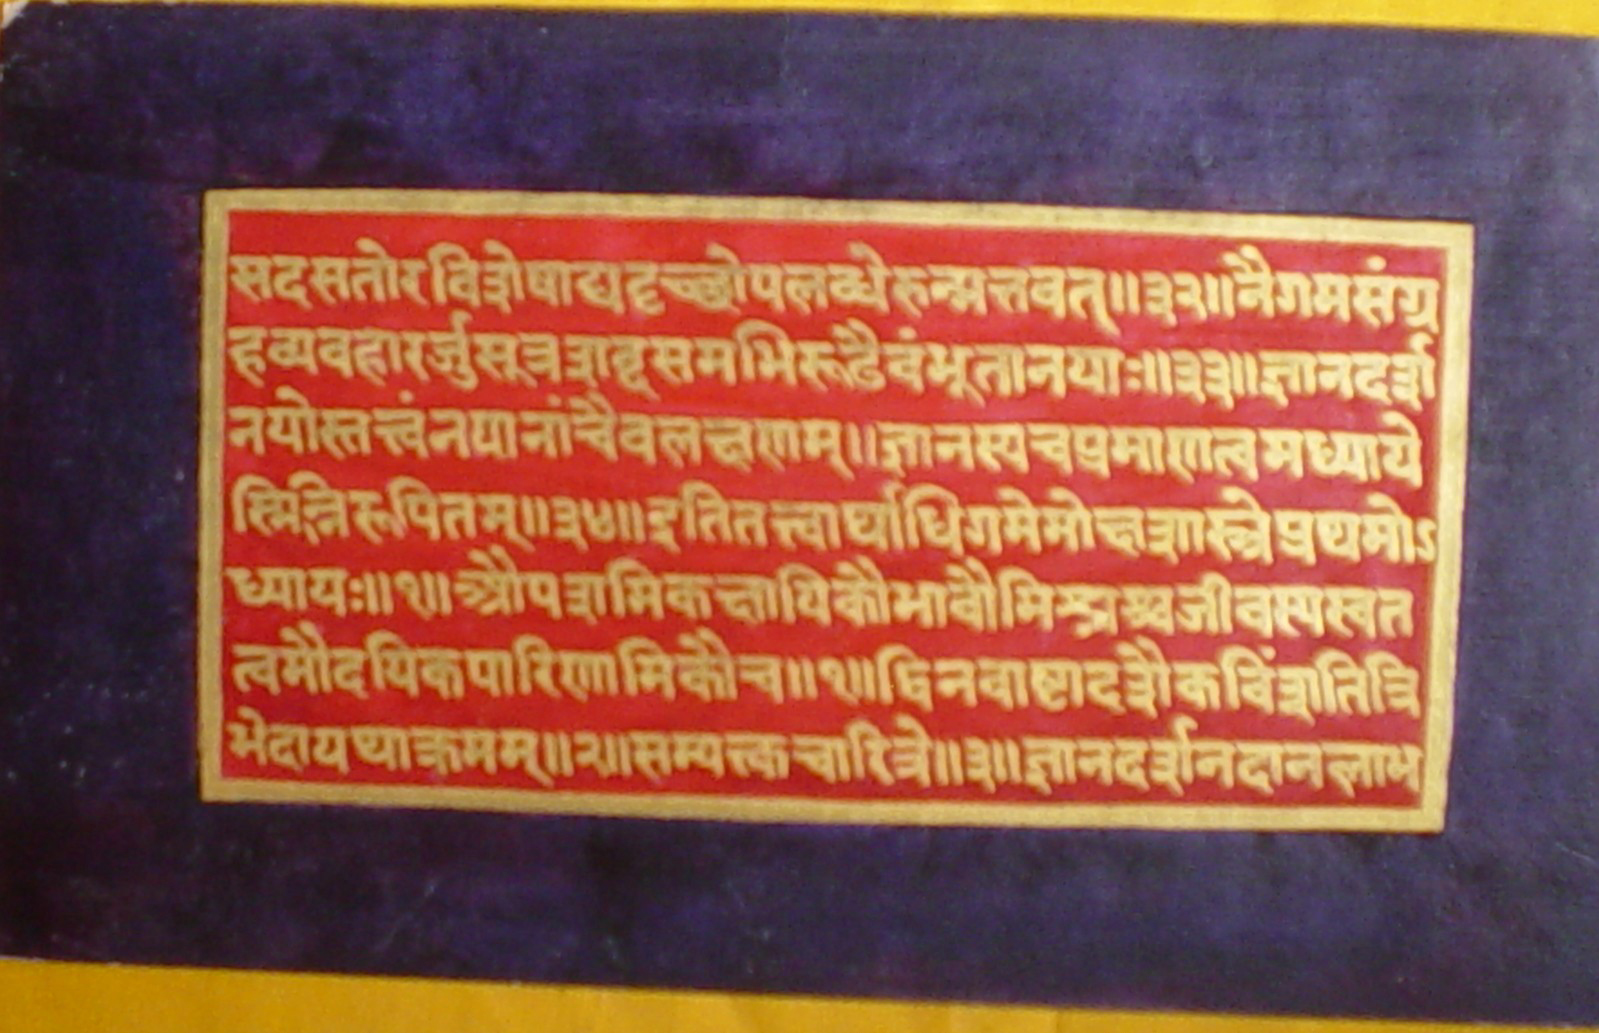 सदसतोरविशेषाद्यदृच्छोपलब्धेरुन्मत्तवत्॥३२॥नैगमसंग्र
हव्यवहारर्जुसूत्रशब्दसमभिरूढैवंभूतानयाः॥३३॥ज्ञानदर्श
नयोस्तत्त्वंनयानांचैवलक्षणम्॥ज्ञानस्यचप्रमाणत्वमध्याये
स्मिन्निरूपितम्॥३४॥इतितत्त्वार्थाधिगमेमोक्षशास्त्रेप्रथमोऽ
ध्यायः॥१॥औपशमिकक्षायिकौभावौमिश्रश्चजीवस्यस्वत
त्वमौदयिकपारिणामिकौच॥१॥द्विनवाष्टादशैकविंशतित्रि
भेदायथाक्रमम्॥२॥सम्यक्तचारित्रे॥३॥ज्ञानदर्शनदानलाभ